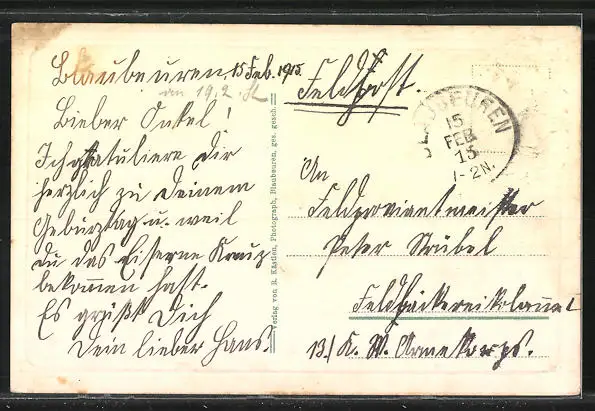 Blaubeuren, 15 Feb. 1915.
an 19.2.
Lieber Onkel!
Ich gratuliere Dir
herzlich zu Deinem
Geburtstag u. weil
du das Eiserne Kreuz
bekommen hast.
Es grüßt Dich
Dein lieber Hans.
Verlag von R. Kästlen, Photograph, Blaubeuren, ges. gesch.
Feldpost.
BLAUBEUREN
15
FEB
15
1-2N.
An
Feldproviantmeister
Peter Strübel
Feldbäckereikolonne I
13./K. W. Armeekorps.